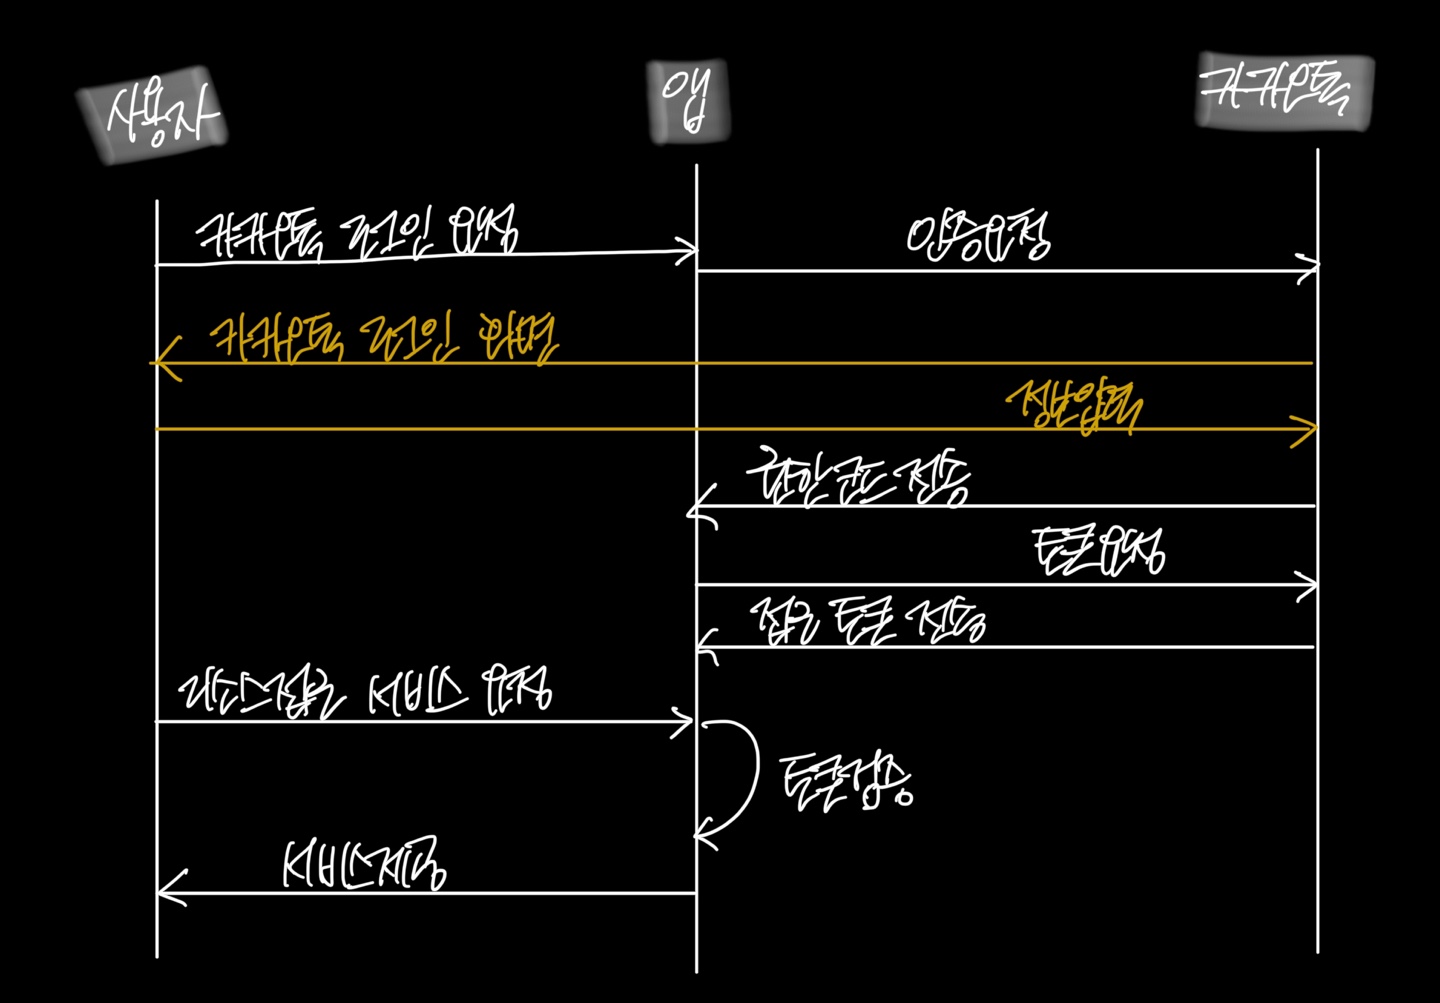 사용자
앱
카카오톡
카카오톡 로그인 요청
인증요청
카카오톡 로그인 화면
정보입력
권한 코드 전송
토큰요청
접근 토큰 전송
리소스접근 서비스 요청
토큰검증
서비스제공